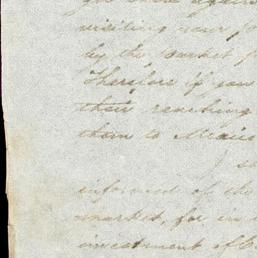 visiting your
by the Market
Therefore if you
their reaching
them to Mexico
I
informed of the
market, for in
investment of